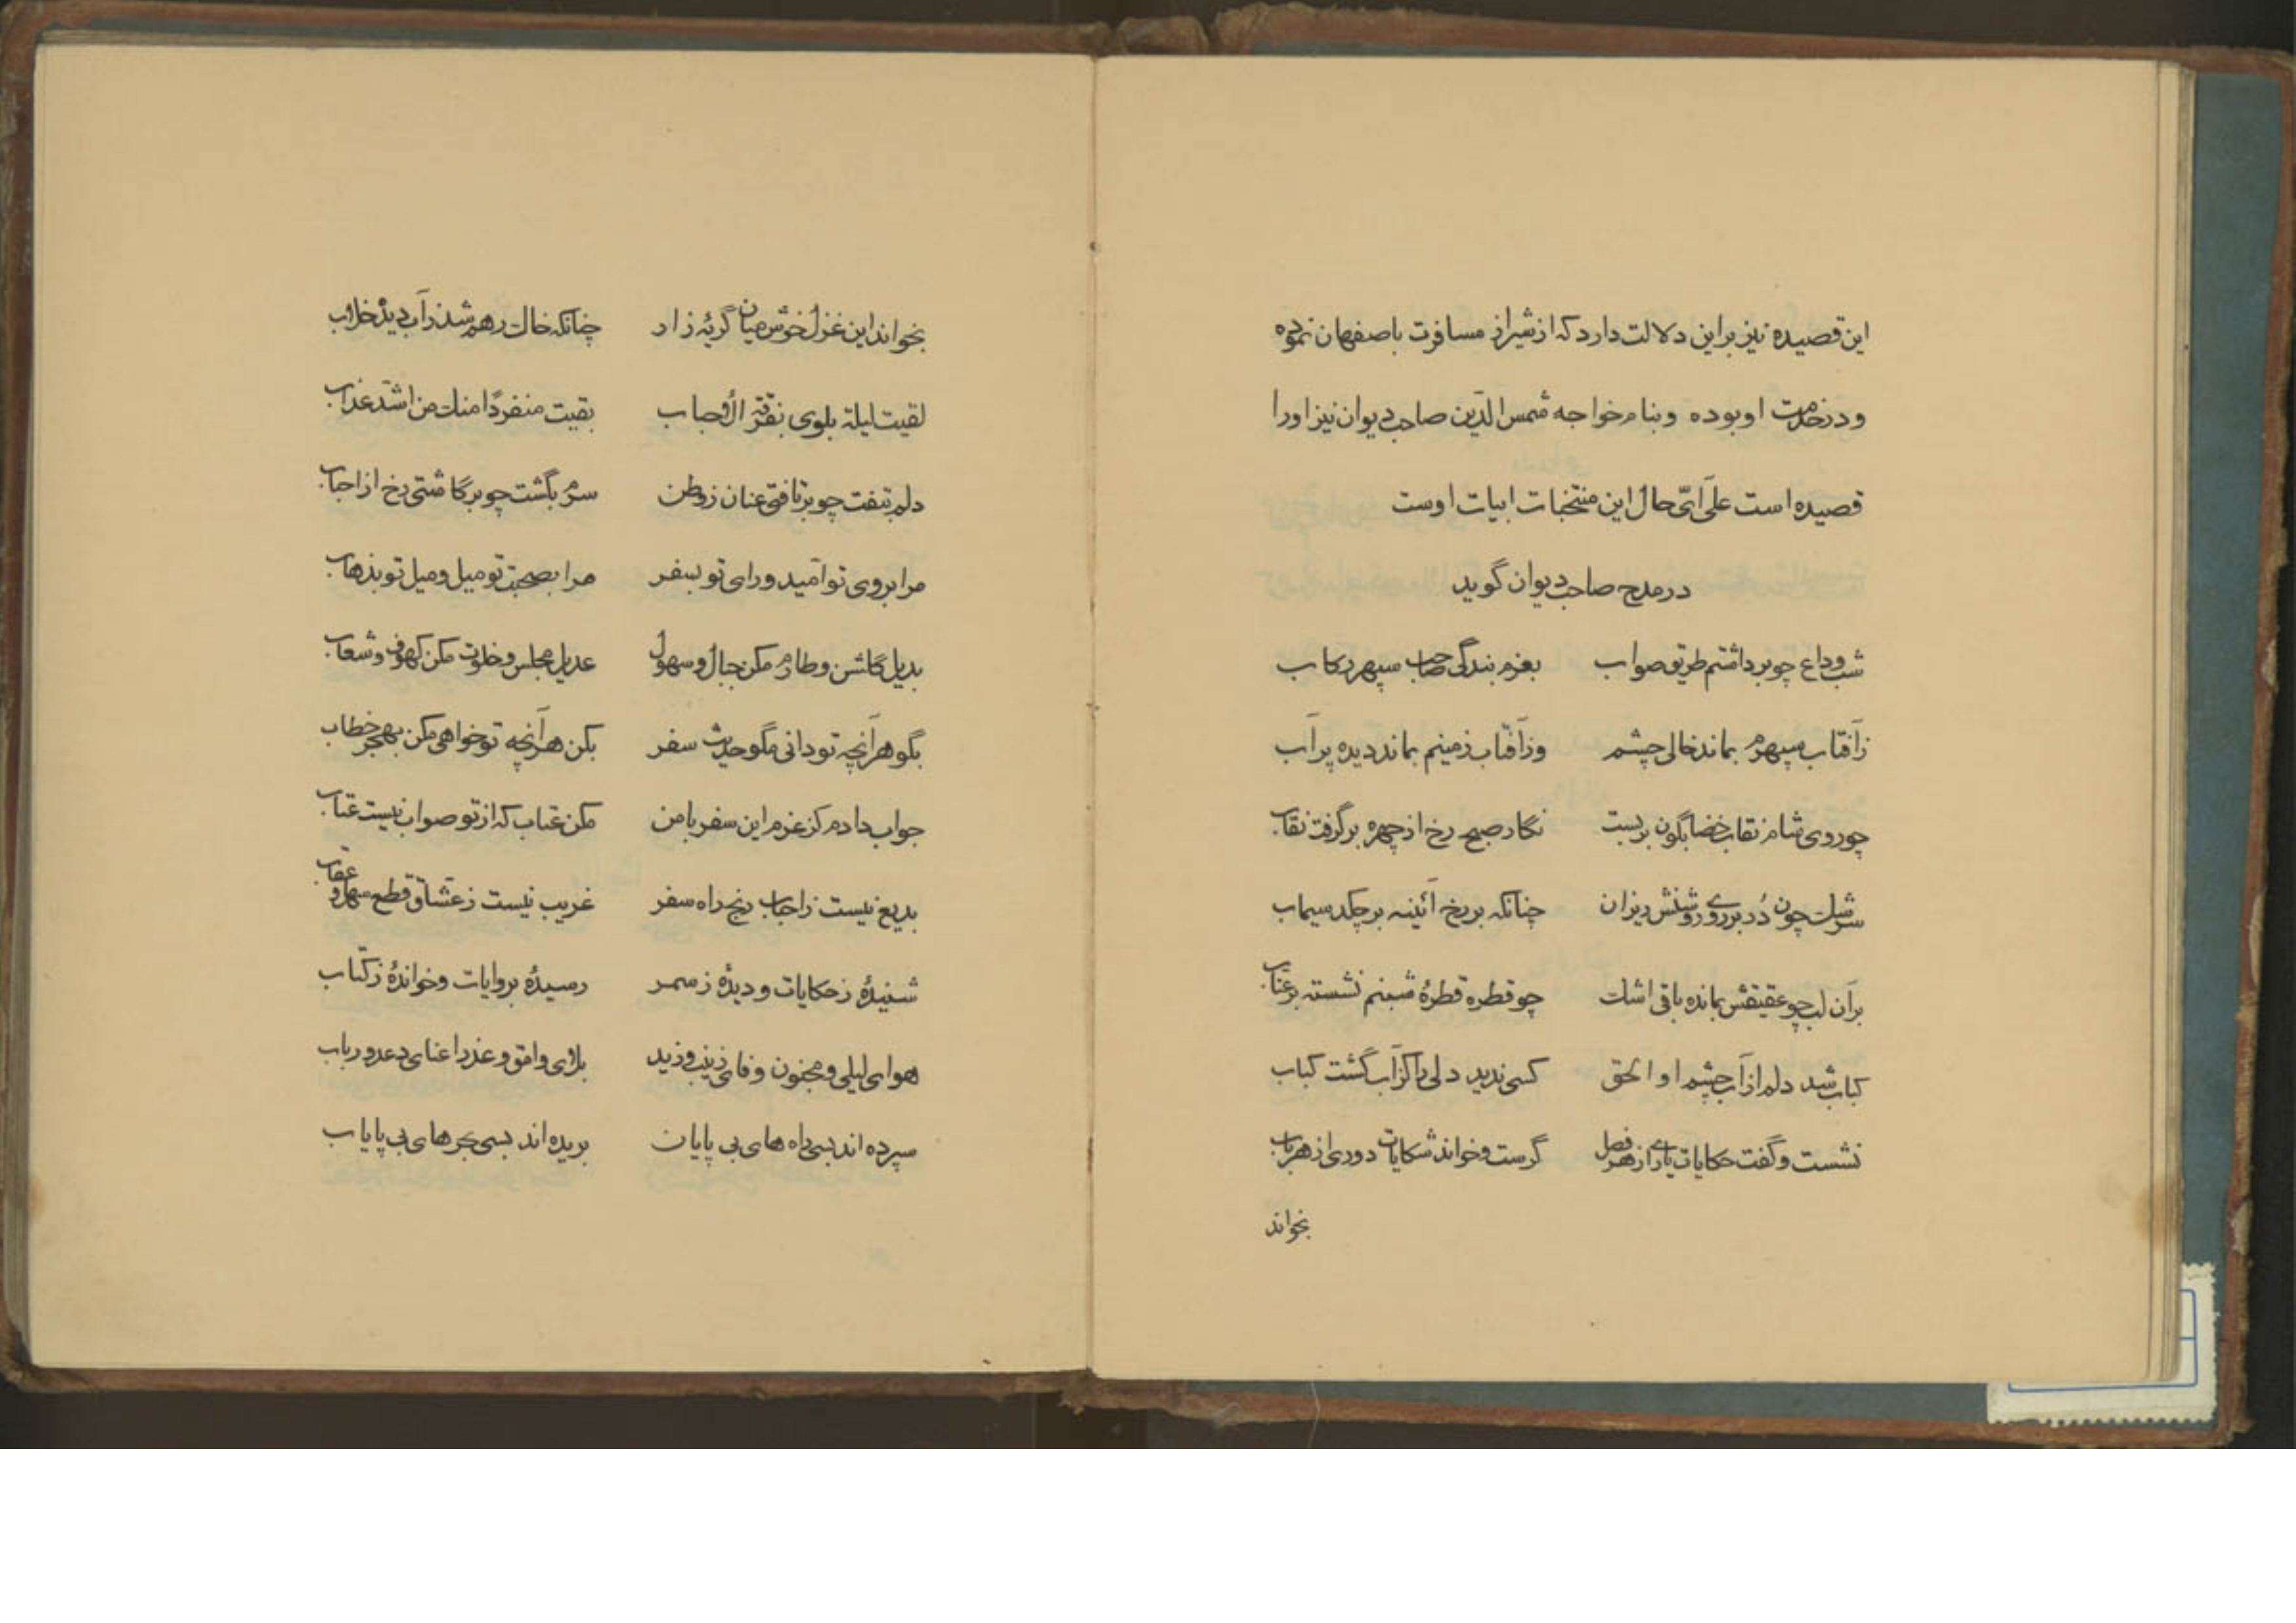 این قصیده نیز براین دلالت دارد که از شیراز مسافرت باصفهان نموده
و در خدمت او بوده و بنام خواجه شمس الدین صاحب دیوان نیز او را
قصیده است علی ایّ حال این منتخبات ابیات اوست
در مدح صاحب دیوان گوید
شب وداع چو برداشتم طریق صواب بعزم بندگی صاحب سپهر رکاب
ز آفتاب سپهرم بماند خالی چشم وز آفتاب زمینم بماند دیده پر آب
چو روی شام نقاب خضابگون بربست نگار صبح رخ از چهره برگرفت نقاب
سرشک چون دُر بر روی روشنش ریزان چنانکه بر رخ آئینه برچکد سیماب
بر آن لب چو عقیقش بمانده باقی اشک چو قطره قطرهٔ شبنم نشسته بر عنّاب
کباب شد دلم از آب چشم او الحق کسی ندید دلی را کز آب گشت کباب
نشست و گفت حکایات یاری از هر فصل گرست و خواند شکایات دوری از هر باب
بخواند
بخواند این غزل خوش میان گریهٔ زار چنانکه خاک رهم شد ز آب دیده خلاب
لقیت لیلة بلوی بفرقة الأحباب بقیت منفردًا منک من اشدّ عذاب
دلم بتفت چو برتافتی عنان ز وطن سرم بگشت چو برگاشتی رخ از احباب
مرا بروی تو امّید و رای تو بسفر مرا بصحبت تو میل و میل تو بذهاب
بدیل گلشن و طارم مکن جبال و سهول عدیل مجلس و خلوت مکن کهوف و شعاب
بگو هر آنچه تو دانی مگو حدیث سفر بکن هر آنچه تو خواهی مکن بهجر خطاب
جواب دادم کز عزم این سفر با من مکن عتاب که از تو صواب نیست عتاب
بدیع نیست ز احباب رنج راه سفر غریب نیست ز عشّاق قطع سهل و عقاب
شنیدهٔ ز حکایات و دیدهٔ ز سمر رسیدهٔ بروایات و خواندهٔ ز کتاب
هوای لیلی و مجنون وفای زینب و زید بلای وامق و عذرا عنای دعد و رباب
سپرده اند بسی راه های بی پایان بریده اند بسی بحرهای بی پایاب